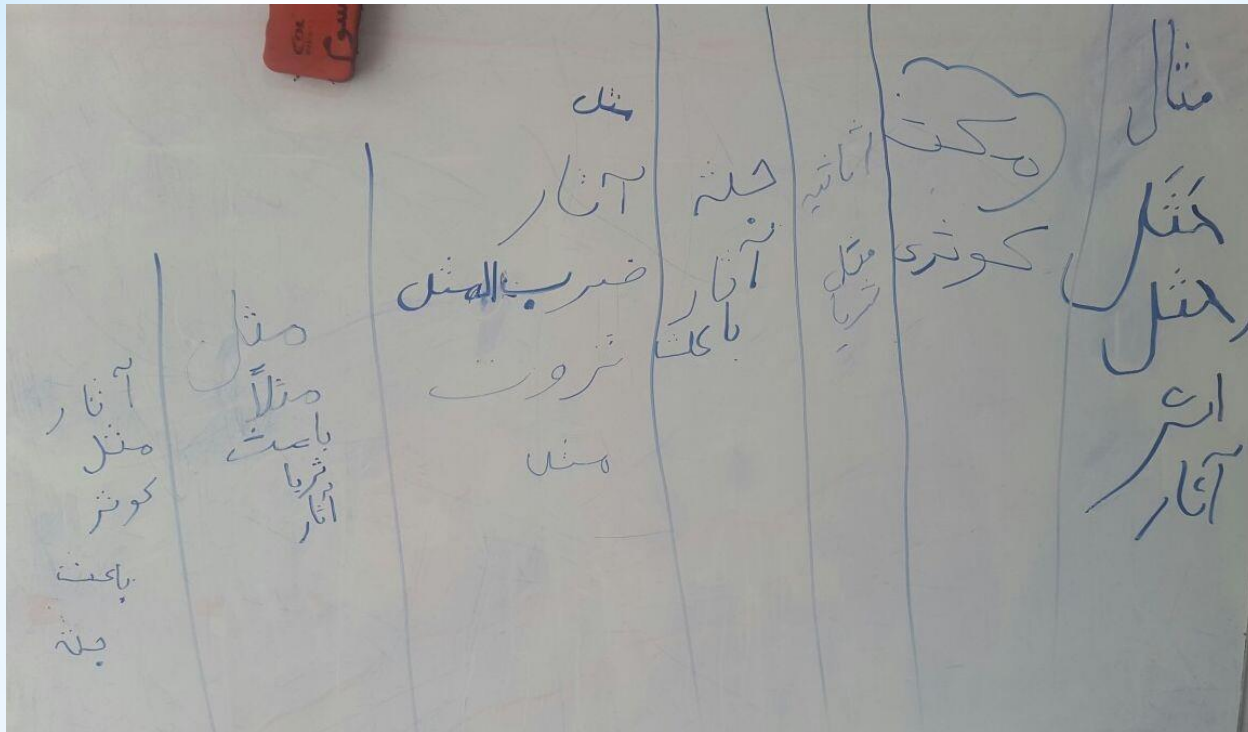 مثال
مَثَل
مثل
اثر
آثار
مکث
کوثری
اثاثیه
مثل
ثریا
جثه
آثار
باعث
مثل
آثار
ضرب المثل
ثروت
مثل
مثل
مثلاً
باعث
ثریا
آثار
آثار
مثل
کوثر
باعث
جثه
سوم